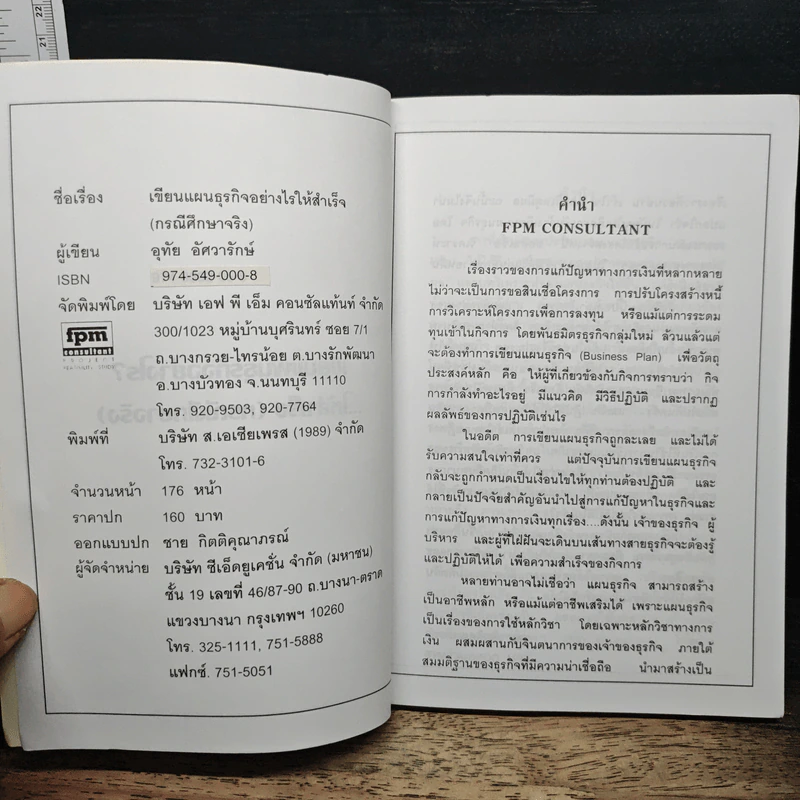 22
21
ชื่อเรื่อง เขียนแผนธุรกิจอย่างไรให้สำเร็จ
(กรณีศึกษาจริง)
ผู้เขียน อุทัย อัศวารักษ์
ISBN 974-549-000-8
จัดพิมพ์โดย บริษัท เอฟ พี เอ็ม คอนซัลแท้นท์ จำกัด
fpm
consultant
PROJECT
300/1023 หมู่บ้านบุศรินทร์ ซอย 7/1
ถ.บางกรวย-ไทรน้อย ต.บางรักพัฒนา
อ.บางบัวทอง จ.นนทบุรี 11110
โทร. 920-9503, 920-7764
พิมพ์ที่ บริษัท ส.เอเซียเพรส (1989) จำกัด
โทร. 732-3101-6
จำนวนหน้า 176 หน้า
ราคาปก 160 บาท
ออกแบบปก ชาย กิตติคุณาภรณ์
ผู้จัดจำหน่าย บริษัท ซีเอ็ดยูเคชั่น จำกัด (มหาชน)
ชั้น 19 เลขที่ 46/87-90 ถ.บางนา-ตราด
แขวงบางนา กรุงเทพฯ 10260
โทร. 325-1111, 751-5888
แฟกซ์. 751-5051
คำนำ
FPM CONSULTANT
เรื่องราวของการแก้ปัญหาทางการเงินที่หลากหลาย
ไม่ว่าจะเป็นการขอสินเชื่อโครงการ การปรับโครงสร้างหนี้
การวิเคราะห์โครงการเพื่อการลงทุน หรือแม้แต่การระดม
ทุนเข้าในกิจการ โดยพันธมิตรธุรกิจกลุ่มใหม่ ล้วนแล้วแต่
จะต้องทำการเขียนแผนธุรกิจ (Business Plan) เพื่อวัตถุ
ประสงค์หลัก คือ ให้ผู้ที่เกี่ยวข้องกับกิจการทราบว่า กิจ
การกำลังทำอะไรอยู่ มีแนวคิด มีวิธีปฏิบัติ และปรากฏ
ผลลัพธ์ของการปฏิบัติเช่นไร
ในอดีต การเขียนแผนธุรกิจถูกละเลย และไม่ได้
รับความสนใจเท่าที่ควร แต่ปัจจุบันการเขียนแผนธุรกิจ
กลับจะถูกกำหนดเป็นเงื่อนไขให้ทุกท่านต้องปฏิบัติ และ
กลายเป็นปัจจัยสำคัญอันนำไปสู่การแก้ปัญหาในธุรกิจและ
การแก้ปัญหาทางการเงินทุกเรื่อง....ดังนั้น เจ้าของธุรกิจ ผู้
บริหาร และผู้ที่ใฝ่ฝันจะเดินบนเส้นทางสายธุรกิจจะต้องรู้
และปฏิบัติให้ได้ เพื่อความสำเร็จของกิจการ
หลายท่านอาจไม่เชื่อว่า แผนธุรกิจ สามารถสร้าง
เป็นอาชีพหลัก หรือแม้แต่อาชีพเสริมได้ เพราะแผนธุรกิจ
เป็นเรื่องของการใช้หลักวิชา โดยเฉพาะหลักวิชาทางการ
เงิน ผสมผสานกับจินตนาการของเจ้าของธุรกิจ ภายใต้
สมมติฐานของธุรกิจที่มีความน่าเชื่อถือ นำมาสร้างเป็น